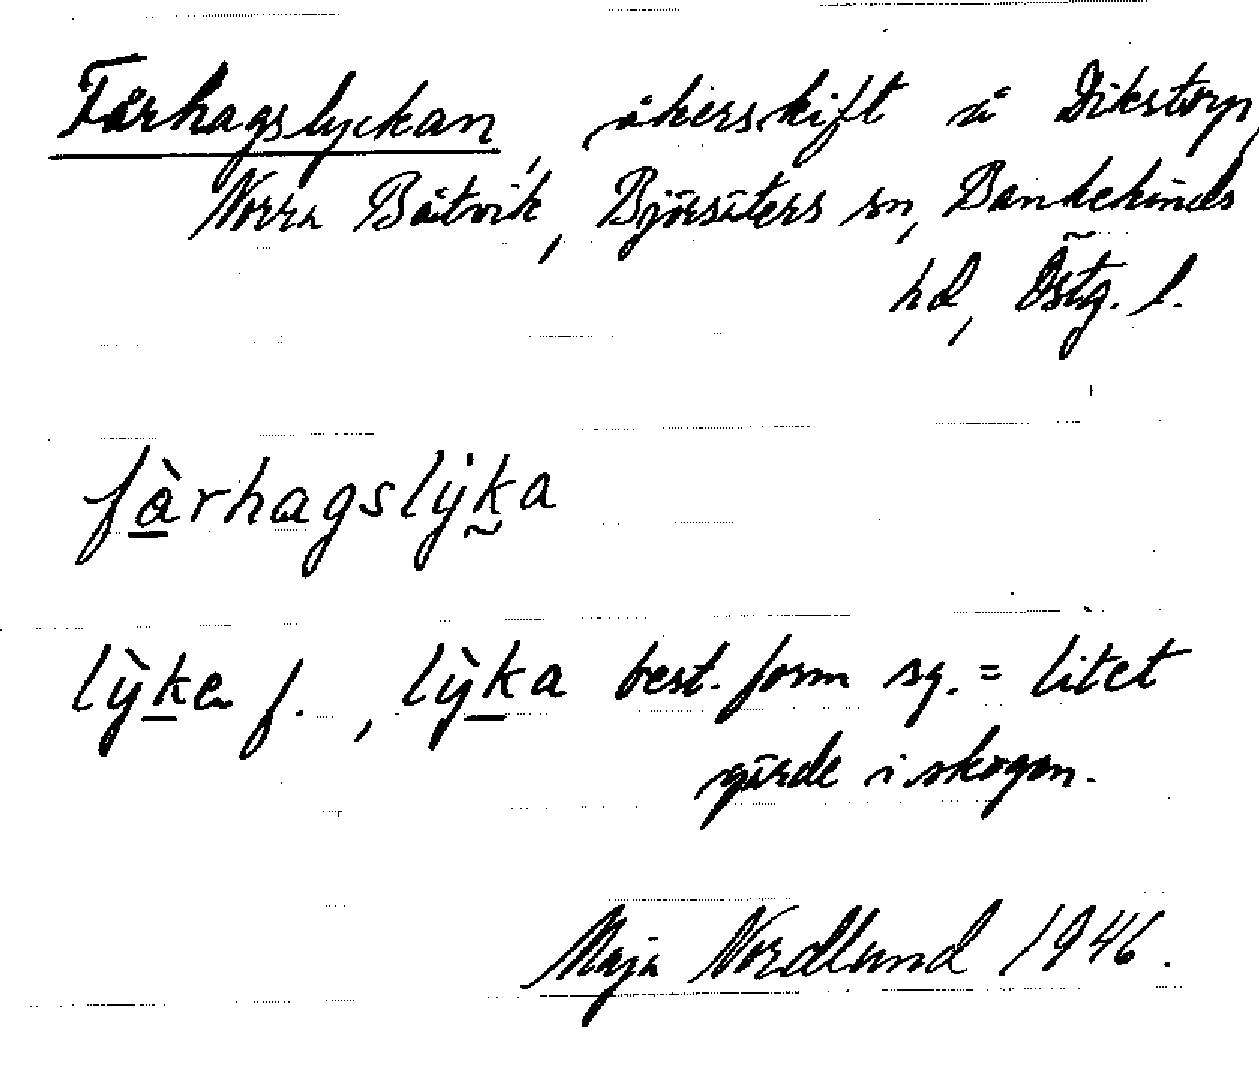 Fårhagslyckan, åkerskift å Dikstorp,
Norra Båtvik, Björsäters sn, Bankekinds
hd, Östg. l.
fàrhagslýka
lỳke f., lỳka best. form sg. = litet
gärde i skogen.
Maja Nordlund 1946.